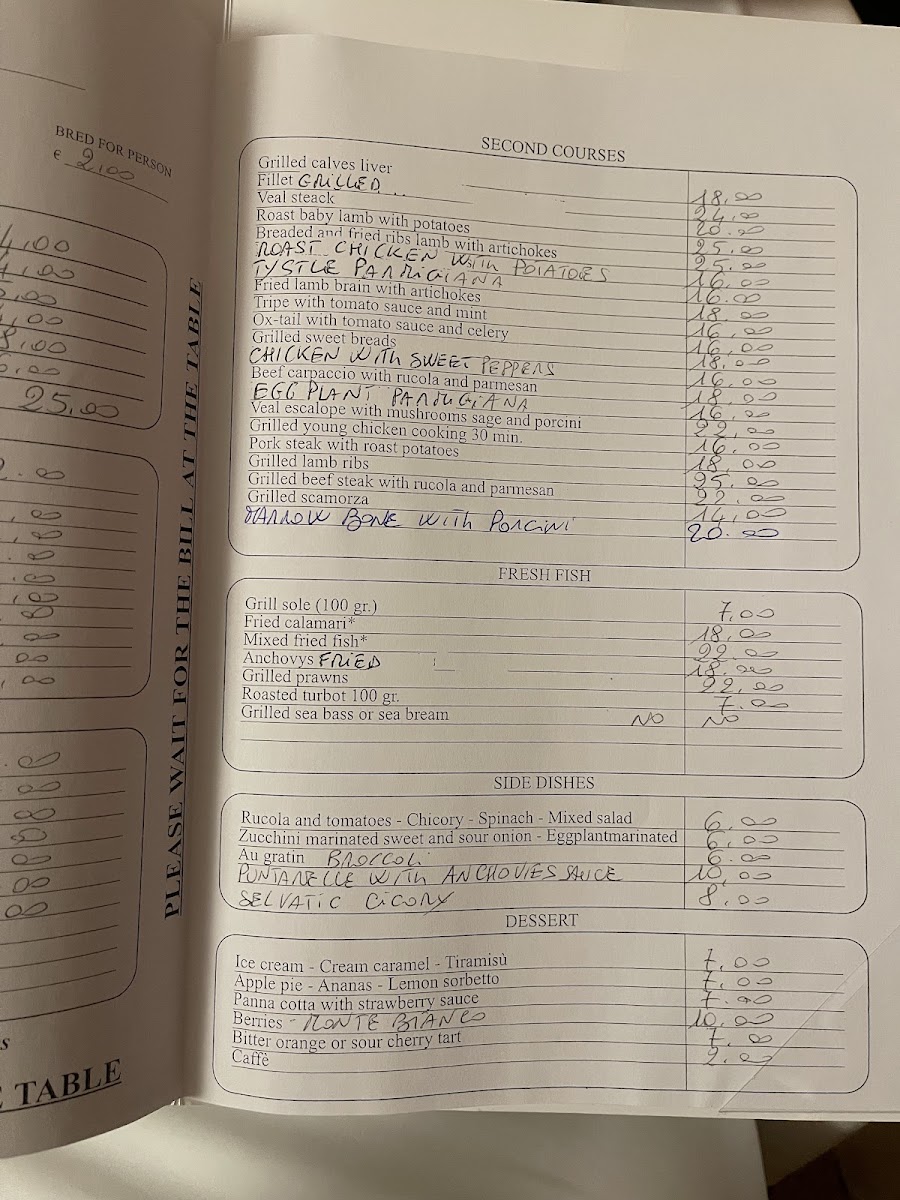 BRED FOR PERSON
€ 2,00
25,00
PLEASE WAIT FOR THE BILL AT THE TABLE
TABLE
SECOND COURSES
Grilled calves liver 18,00
Fillet GRILLED 24,00
Veal steack 20.00
Roast baby lamb with potatoes 25,00
Breaded and fried ribs lamb with artichokes 25,00
ROAST CHICKEN WITH POTATOES 16,00
TYSTLE PARMIGIANA 16.00
Fried lamb brain with artichokes 18,00
Tripe with tomato sauce and mint 16,00
Ox-tail with tomato sauce and celery 16,00
Grilled sweet breads 18,00
CHICKEN WITH SWEET PEPPERS 16,00
Beef carpaccio with rucola and parmesan 18,00
EGG PLANT PARMIGIANA 16,00
Veal escalope with mushrooms sage and porcini 22,00
Grilled young chicken cooking 30 min. 16,00
Pork steak with roast potatoes 18,00
Grilled lamb ribs 25,00
Grilled beef steak with rucola and parmesan 22,00
Grilled scamorza 14,00
MARROW BONE WITH PORCINI 20.00
FRESH FISH
Grill sole (100 gr.) 7,00
Fried calamari* 18,00
Mixed fried fish* 22,00
Anchovys FRIED 18,00
Grilled prawns 22,00
Roasted turbot 100 gr. 7.00
Grilled sea bass or sea bream NO NO
SIDE DISHES
Rucola and tomatoes - Chicory - Spinach - Mixed salad 6,00
Zucchini marinated sweet and sour onion - Eggplantmarinated 6,00
Au gratin BROCCOLI 6.00
PUNTARELLE WITH ANCHOVIES SAUCE 10,00
SELVATIC CICORY 8,00
DESSERT
Ice cream - Cream caramel - Tiramisù 7,00
Apple pie - Ananas - Lemon sorbetto 7,00
Panna cotta with strawberry sauce 7.00
Berries - MONTE BIANCO 10,00
Bitter orange or sour cherry tart 7,00
Caffè 2,00